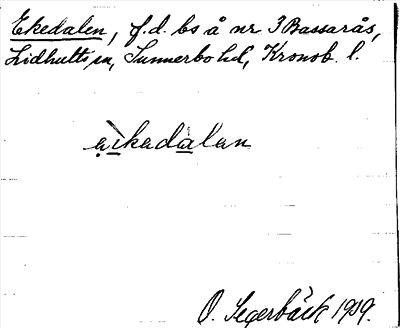 Ekedalen, f.d. bs å nr 3 Bassarås,
Lidhults sn, Sunnerbo hd, Kronob. l.
aìkadalan
O. Segerbäck 1909.